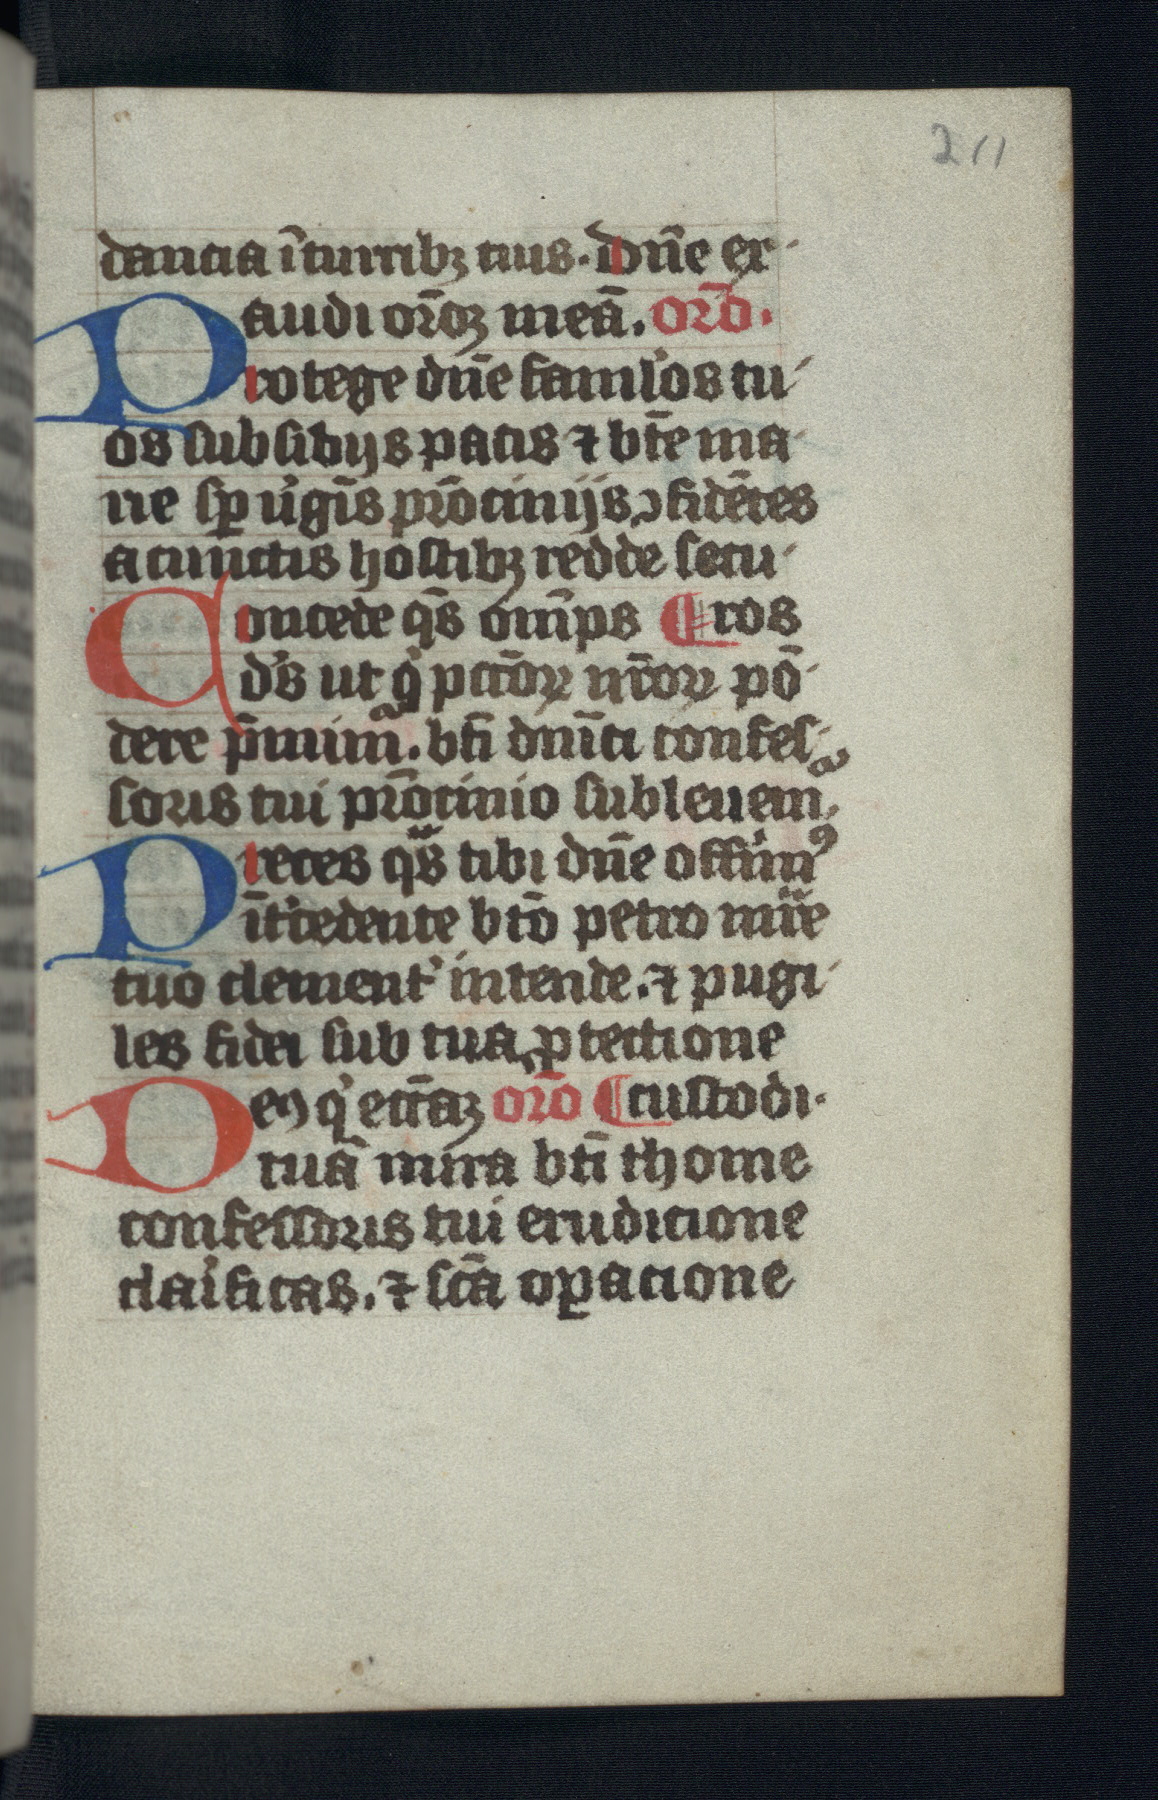 211
dancia ī turribꝫ tuis. dn̄e ex-
audi or̄oꝫ meā. or̄o.
Protege dn̄e famỉos tu-
os subsidijs pacis ⁊ bt̄e ma-
rie sꝑ v̉gīs pr̄ocinijs ↄfidētes
a cunctis hostibꝫ redde secu-
Concede q̄s om̄ps ¶ ros
d̓s ut q̓ pcc̄oꝝ nr̄oꝝ pō-
dere p̄mimᷓ. bt̄i dn̄ici confes-
soris tui pr̄ocinio subleuemᷓ.
Preces q̄s tibi dn̄e offim̓ꝰ
īt̓cedente bt̄o petro mr̄e
tuo clement̓ intende. ⁊ pugi-
les fidei sub tua ꝓtectione
Deꝰ q̓ ecc̄aꝫ or̄o ¶ custodi.
tuā mira bt̄i thome
confessoris tui erudicione
clar̓ficas. ⁊ sc̄a oꝑacione